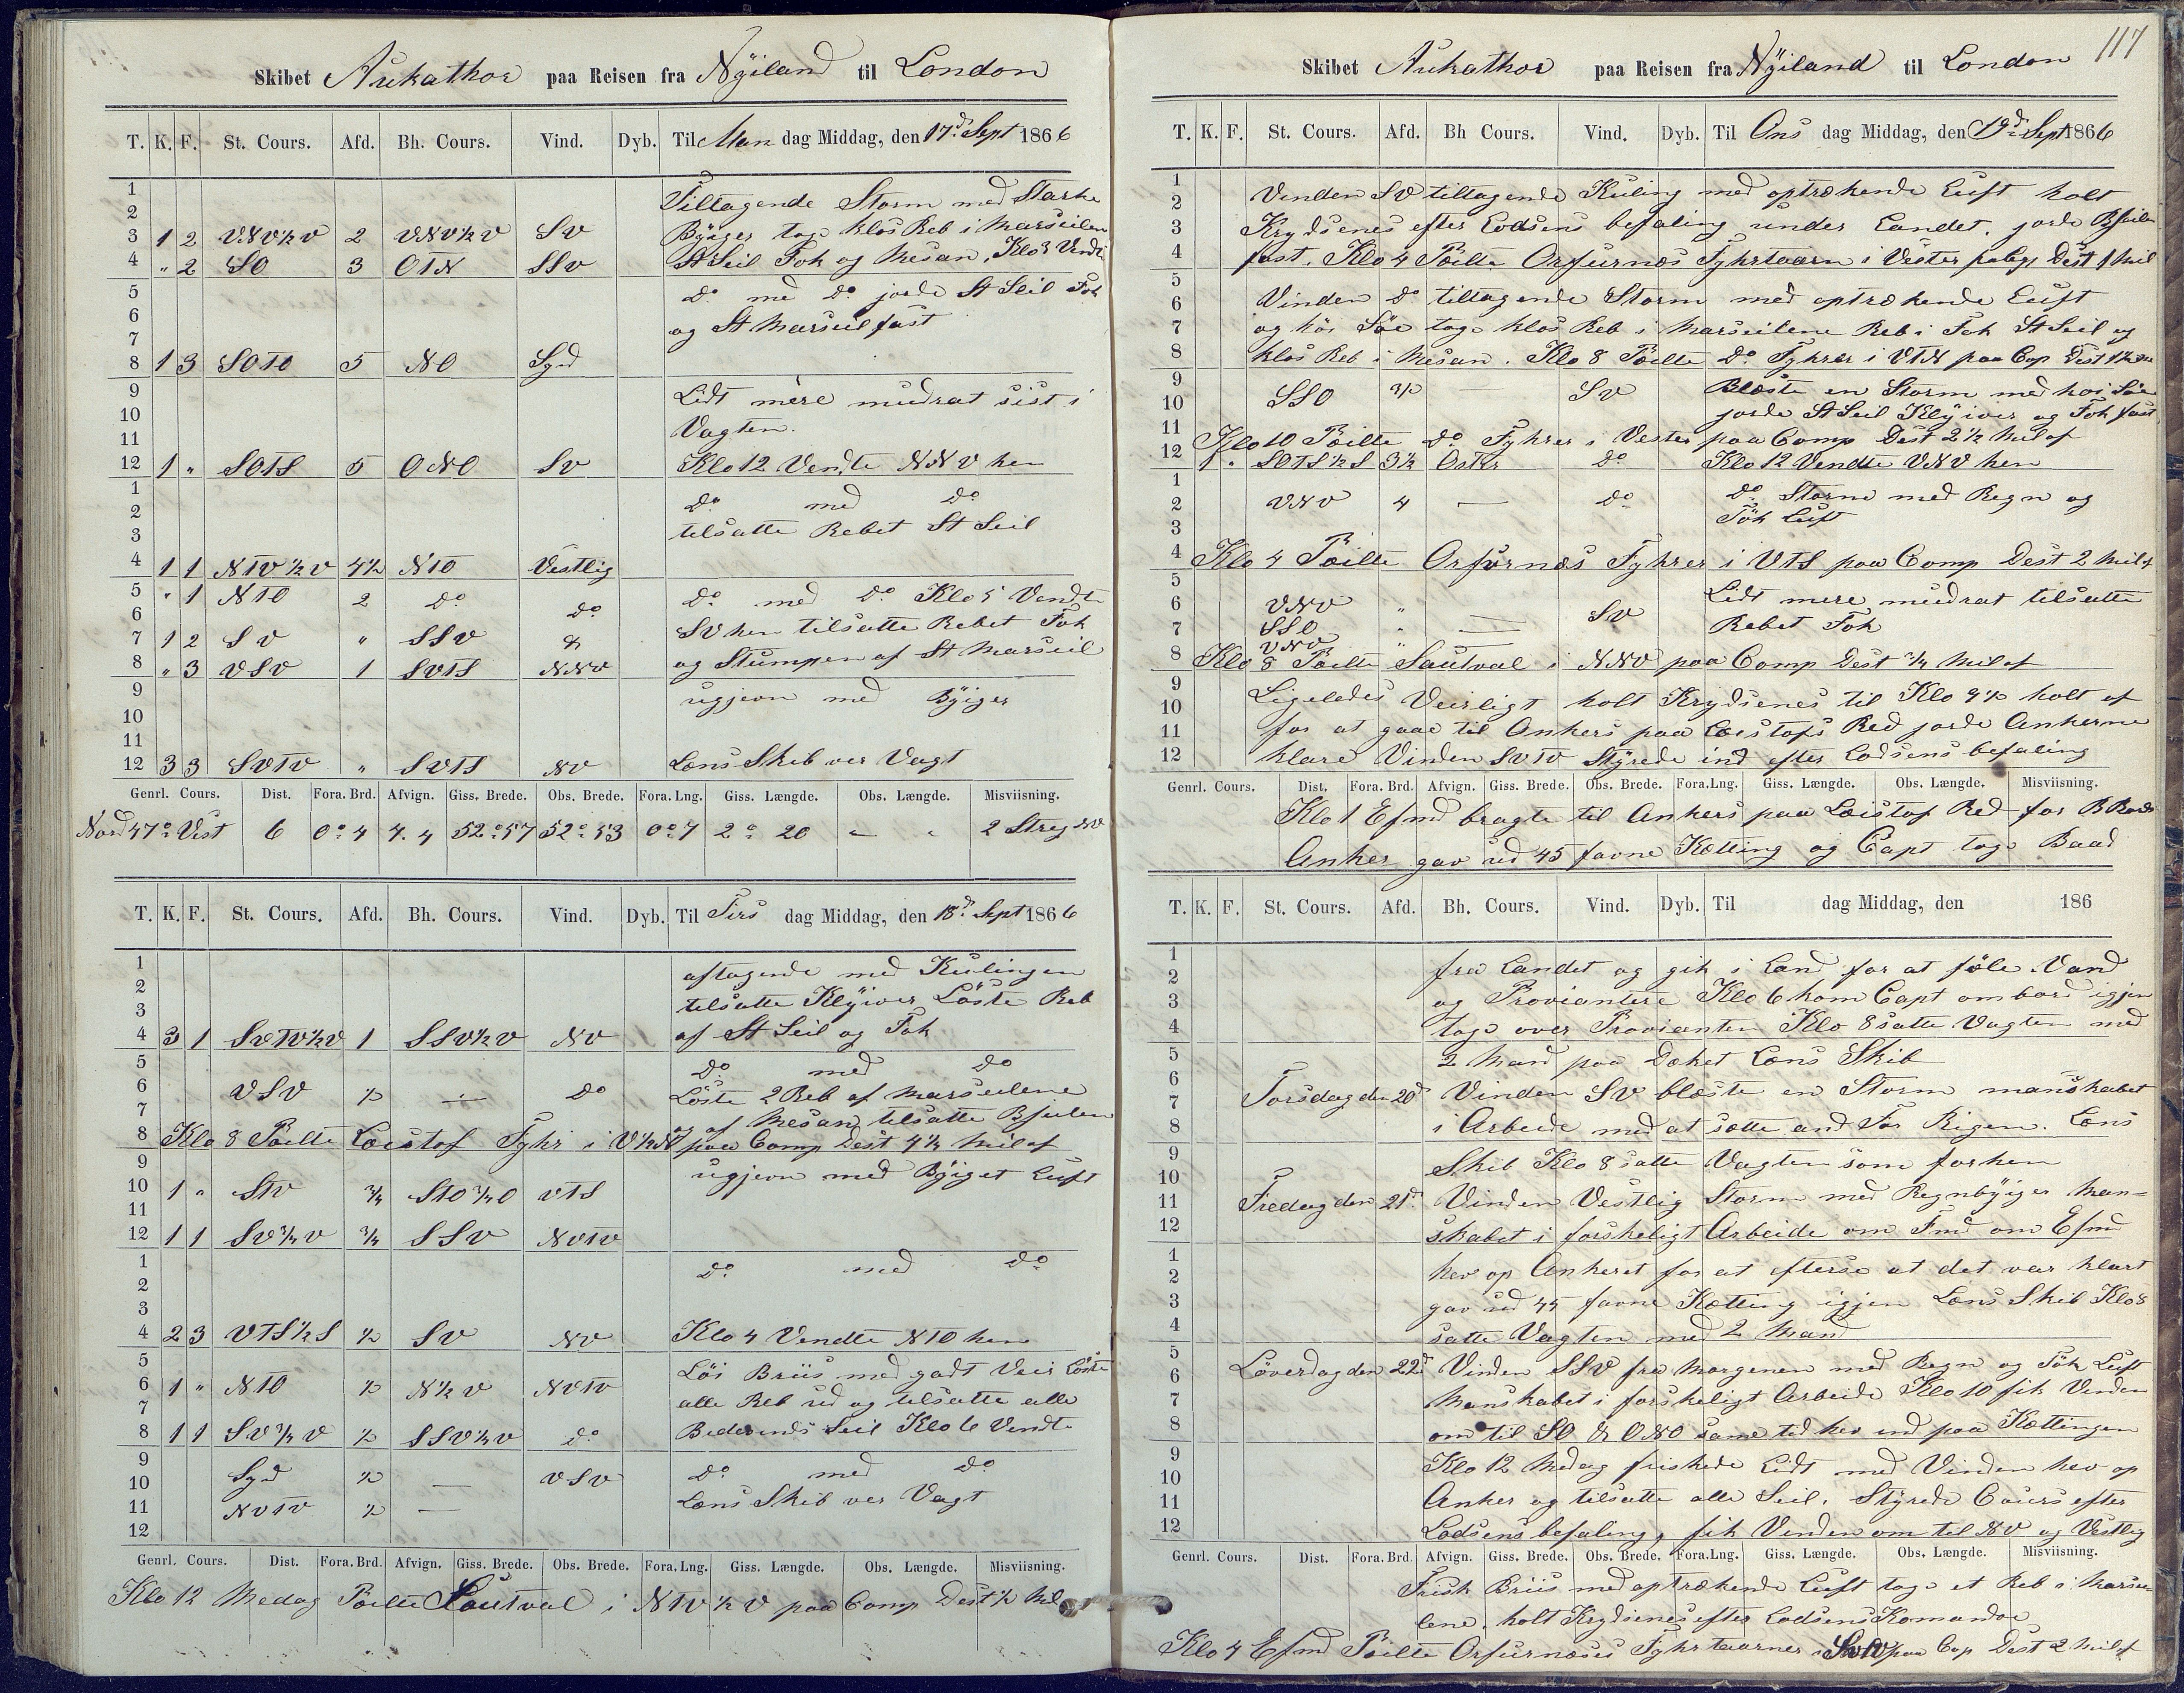 Skibet Aukathor paa Reisen fra Nÿiland til London
T. K. F. St. Cours. Afd. Bh. Cours. Vind. Dyb. Til Man dag Middag, den 17d Sept 1866
1 Tiltagende Storm med Starke
2
3 1 2 VNV½V 2 VNV½V SV Bÿiger tog klos Reb i Marseilen
4 " 2 SO 3 OTN SSV St Seil Fok og Mesan. Klo 3 Vendte
5 Do med Do jorde St Seil Fok
6 og St Marseil fast
7
8 1 3 SOTO 5 NO Syd
9 Lidt mere mudrat sist i
10 Vagten.
11
12 1 " SOTS 5 ONO SV Klo 12 Vendte NNV hen
1 Do med Do
2
3 tilsatte Rebet St Seil
4 1 1 NTV½V 4½ NTO Vestlig
5 " 1 NTO 2 Do Do Do med Do Klo 5 Vendte
6 SV hen tilsatte Rebet Fok
7 1 2 SV " SSV &
8 " 3 VSV 1 SVTS NNV og Stumpen af St Marseil
9 ugjevn med Bÿiger
10
11
12 3 3 SVTV " SVTS NV Læns Skib ver Vagt
Genrl. Cours. Dist. Fora. Brd. Afvign. Giss. Brede. Obs. Brede. Fora. Lng. Giss. Længde. Obs. Længde. Misviisning.
Nord 47° Vest 6 0° 4 4. 4 52° 57 52° 53 0° 7 2° 20 – " 2 Streg NV
T. K. F. St. Cours. Afd. Bh. Cours. Vind. Dyb. Til Tirs dag Middag, den 18d Sept 1866
1 aftagende med Kulingen
2
3 tilsatte Klÿiver Löste Reb
4 3 1 SVTV½V 1 SSV½V NV af St Seil og Fok
5 Do med Do
6 VSV ½ — Do Löste 2 Reb af Marseilene
7 og af Mesan tilsatte Bseilen
8 Klo 8 Peilte Loistof Fyhr i V½N paa Comp Dest 4½ Mil af
9 ugjevn med Bÿiget Luft
10 1 " STV ¾ STO¾O VTS
11
12 1 1 SV¾V ¾ SSV NVTV
1 Do med Do
2
3
4 2 3 VTS½S ½ SV NV Klo 4 Vendte NTO hen
5 Löi Briis med gadt Veir Löste
6 1 " NTO ½ N½V NVTV
7 alle Reb ud og tilsatte alle
8 1 1 SV¾V ½ SSV½V Do Biderends Seil Klo 6 Vendte
9 Syd ½ — VSV Do med Do
10 Læns Skib ver Vagt
11 NVTV ½ —
12
Genrl. Cours. Dist. Fora. Brd. Afvign. Giss. Brede. Obs. Brede. Fora. Lng. Giss. Længde. Obs. Længde. Misviisning.
Klo 12 Medag Peilte Soutval i NTV½V paa Comp Dest ½ Mil
117
Skibet Aukathor paa Reisen fra Nÿiland til London
T. K. F. St. Cours. Afd. Bh Cours. Vind. Dyb. Til Ons dag Middag, den 19d Sept 1866
1
2 Vinden SV tiltagende Kuling med optrækende Luft holt
3 Krydsenes efter Lodsens befaling under Landet. jorde Bseilen
4 fast. Klo 4 Peilte Orfurnæs Fyhrtaarn i Vester Dest 1 Mil
5
6 Vinden Do tiltagende Storm med optrækende Luft
7 og höi Söe tog klos Reb i Marseilene Reb i Fok St Seil og
8 klos Reb i Mesan. Klo 8 Peilte Do Fyhrer i VTN paa Cop Dest
9 SSO 3½ — SV Blæste en Storm med höi Söe
10 jorde St Seil Klÿiver og Fok fast
11 Klo 10 Peilte Do Fyhrer i Vester paa Comp Dest 2½ Mil af
12 1 " SOTS½S 3½ Oster Do Klo 12 Vendte VNV hen
1 Do Storm med Regn og
2 VNV 4 — Do
3 Tök Luft
4 Klo 4 Peilte Orfurnæs Fyhrer i VTS paa Comp Dest 2 Mil af
5 Lidt mere mudrat tilsatte
6 VNV " — SV
7 SSO " — Rebet Fok
VNV "
8 Klo 8 Peilte Sautval i NNV paa Comp Dest ¾ Mil af
9 Ligeledes Veirligt holt Krydsenes til Klo 9½ holt af
10
11 for at gaae til Ankers paa Loistofs Red jorde Ankerne
12 klare Vinden SVTV Stÿrede ind efter Lodsens befaling
Genrl. Cours. Dist. Fora. Brd. Afvign. Giss. Brede. Obs. Brede. Fora. Lng. Giss. Længde. Obs. Længde. Misviisning.
Klo 1 Efmd bragte til Ankers paa Loistof Red for B Bords
Anker gav ud 45 favne Kætting og Capt tog Baad
T. K. F. St. Cours. Afd. Bh. Cours. Vind. Dyb. Til dag Middag, den 186
1 fra Landet og gik i Land for at föle Vand
2
3 og Proviantere Klo 6 kom Capt ombord igjen
4 tog over Provianten Klo 8 satte Vagten med
5 2 Mand paa Dæket Læns Skib
6
7 Torsdag den 20d Vinden SV blæste en Storm manskabet
8 i Arbeide med at sætte and For Rigen. Læns
9 Skib Klo 8 satte Vagten som forhen
10
11 Fredag den 21d Vinden Vestlig Storm med Regnbÿiger Man-
12 skabet i forskeligt Arbeide om Fmd om Efmd
1 hev op Ankeret for at efterse at det var klart
2
3 gav ud 45 favne Kætting igjen Læns Skib Klo 8
4 satte Vagten med 2 Mand
5
6 Löverdag den 22d Vinden SSV fra Morgenen med Regn og Tök Luft
7 Manskabet i forskeligt Arbeide Klo 10 fik Vinden
8 om til SO & ONO same tid hev ind paa Kættingen
9 Klo 12 Medag friskede Lidt med Vinden hev op
10
11 Anker og tilsatte alle Seil. Stÿrede Cours efter
12 Lodsens befaling, fik Vinden om til NV og Vestlig
Genrl. Cours. Dist. Fora. Brd. Afvign. Giss. Brede. Obs. Brede. Fora. Lng. Giss. Længde. Obs. Længde. Misviisning.
Frisk Briis med optrækende Luft tog et Reb i Marsei
lene. holt Krydsenes efter Lodsens Komandoe
Klo 4 Efmd Peilte Orfurnæses Fyhrtaarner i paa Cop Dest 2 Mil af